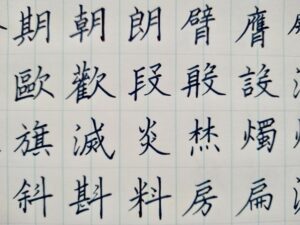 期朝朗臂膺
歐歡段設
旗滅炎燭
斜斟料房扁